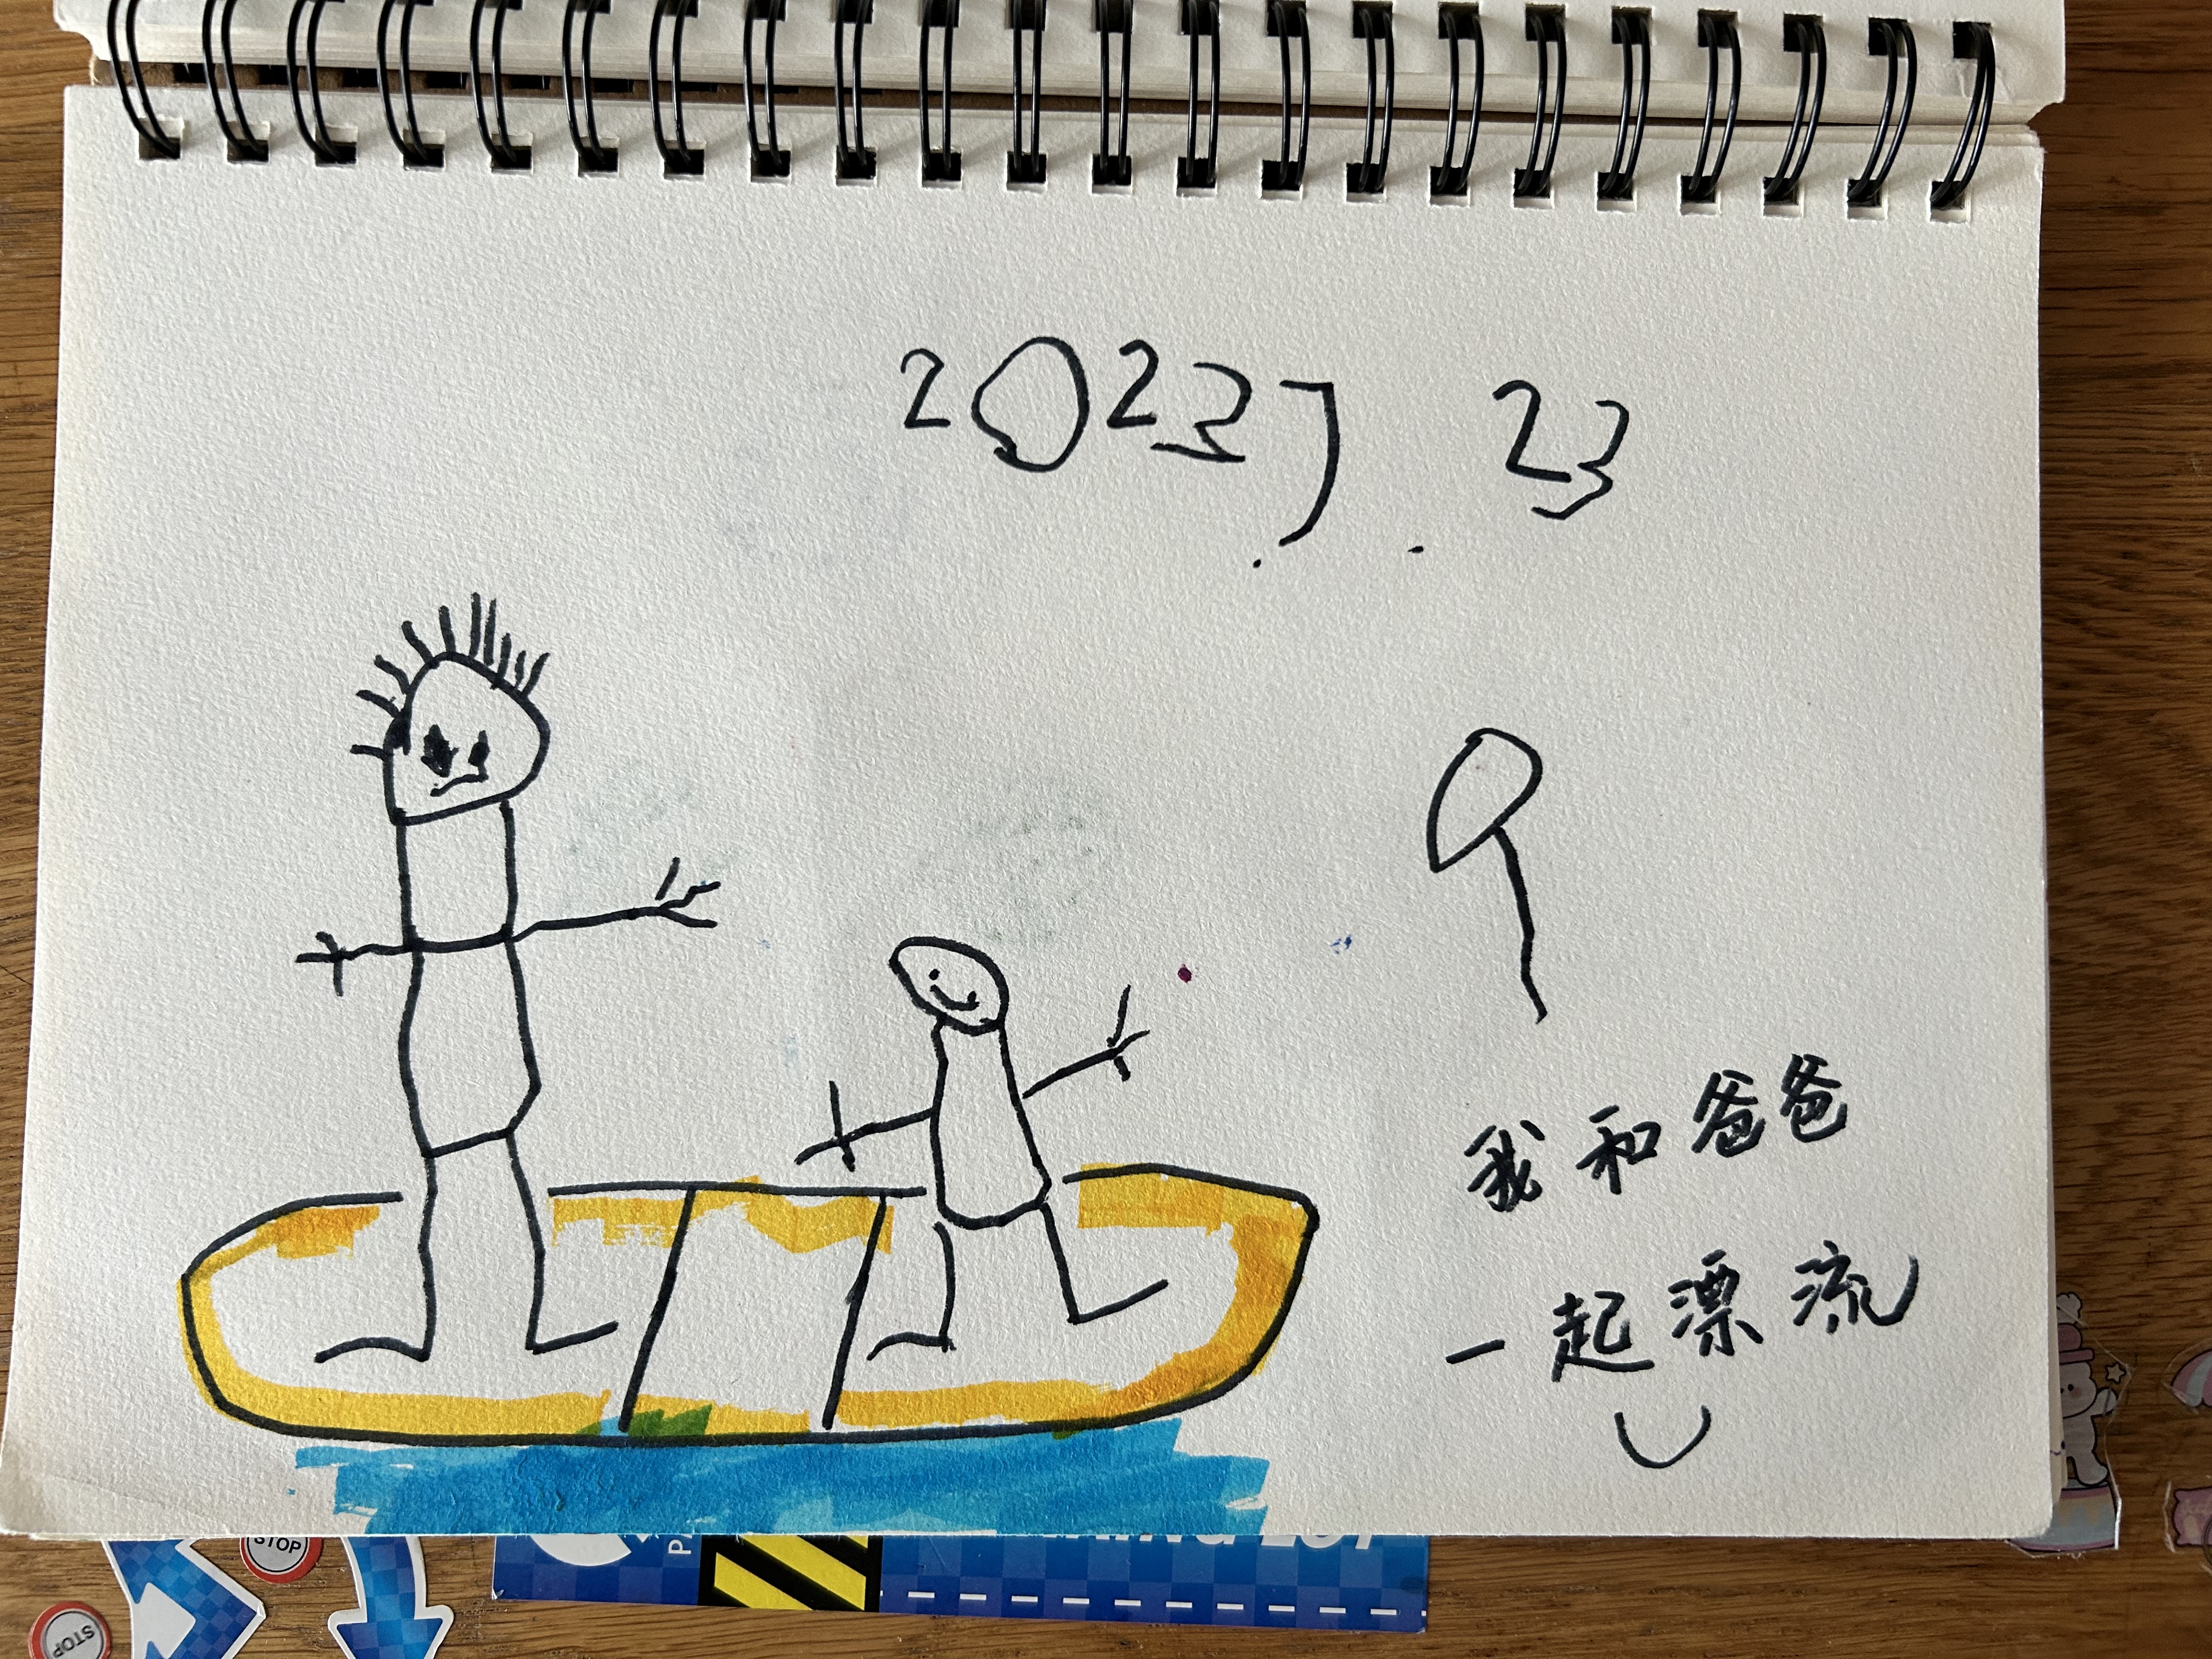 2023.7.23
我和爸爸
一起漂流
STOP
STOP